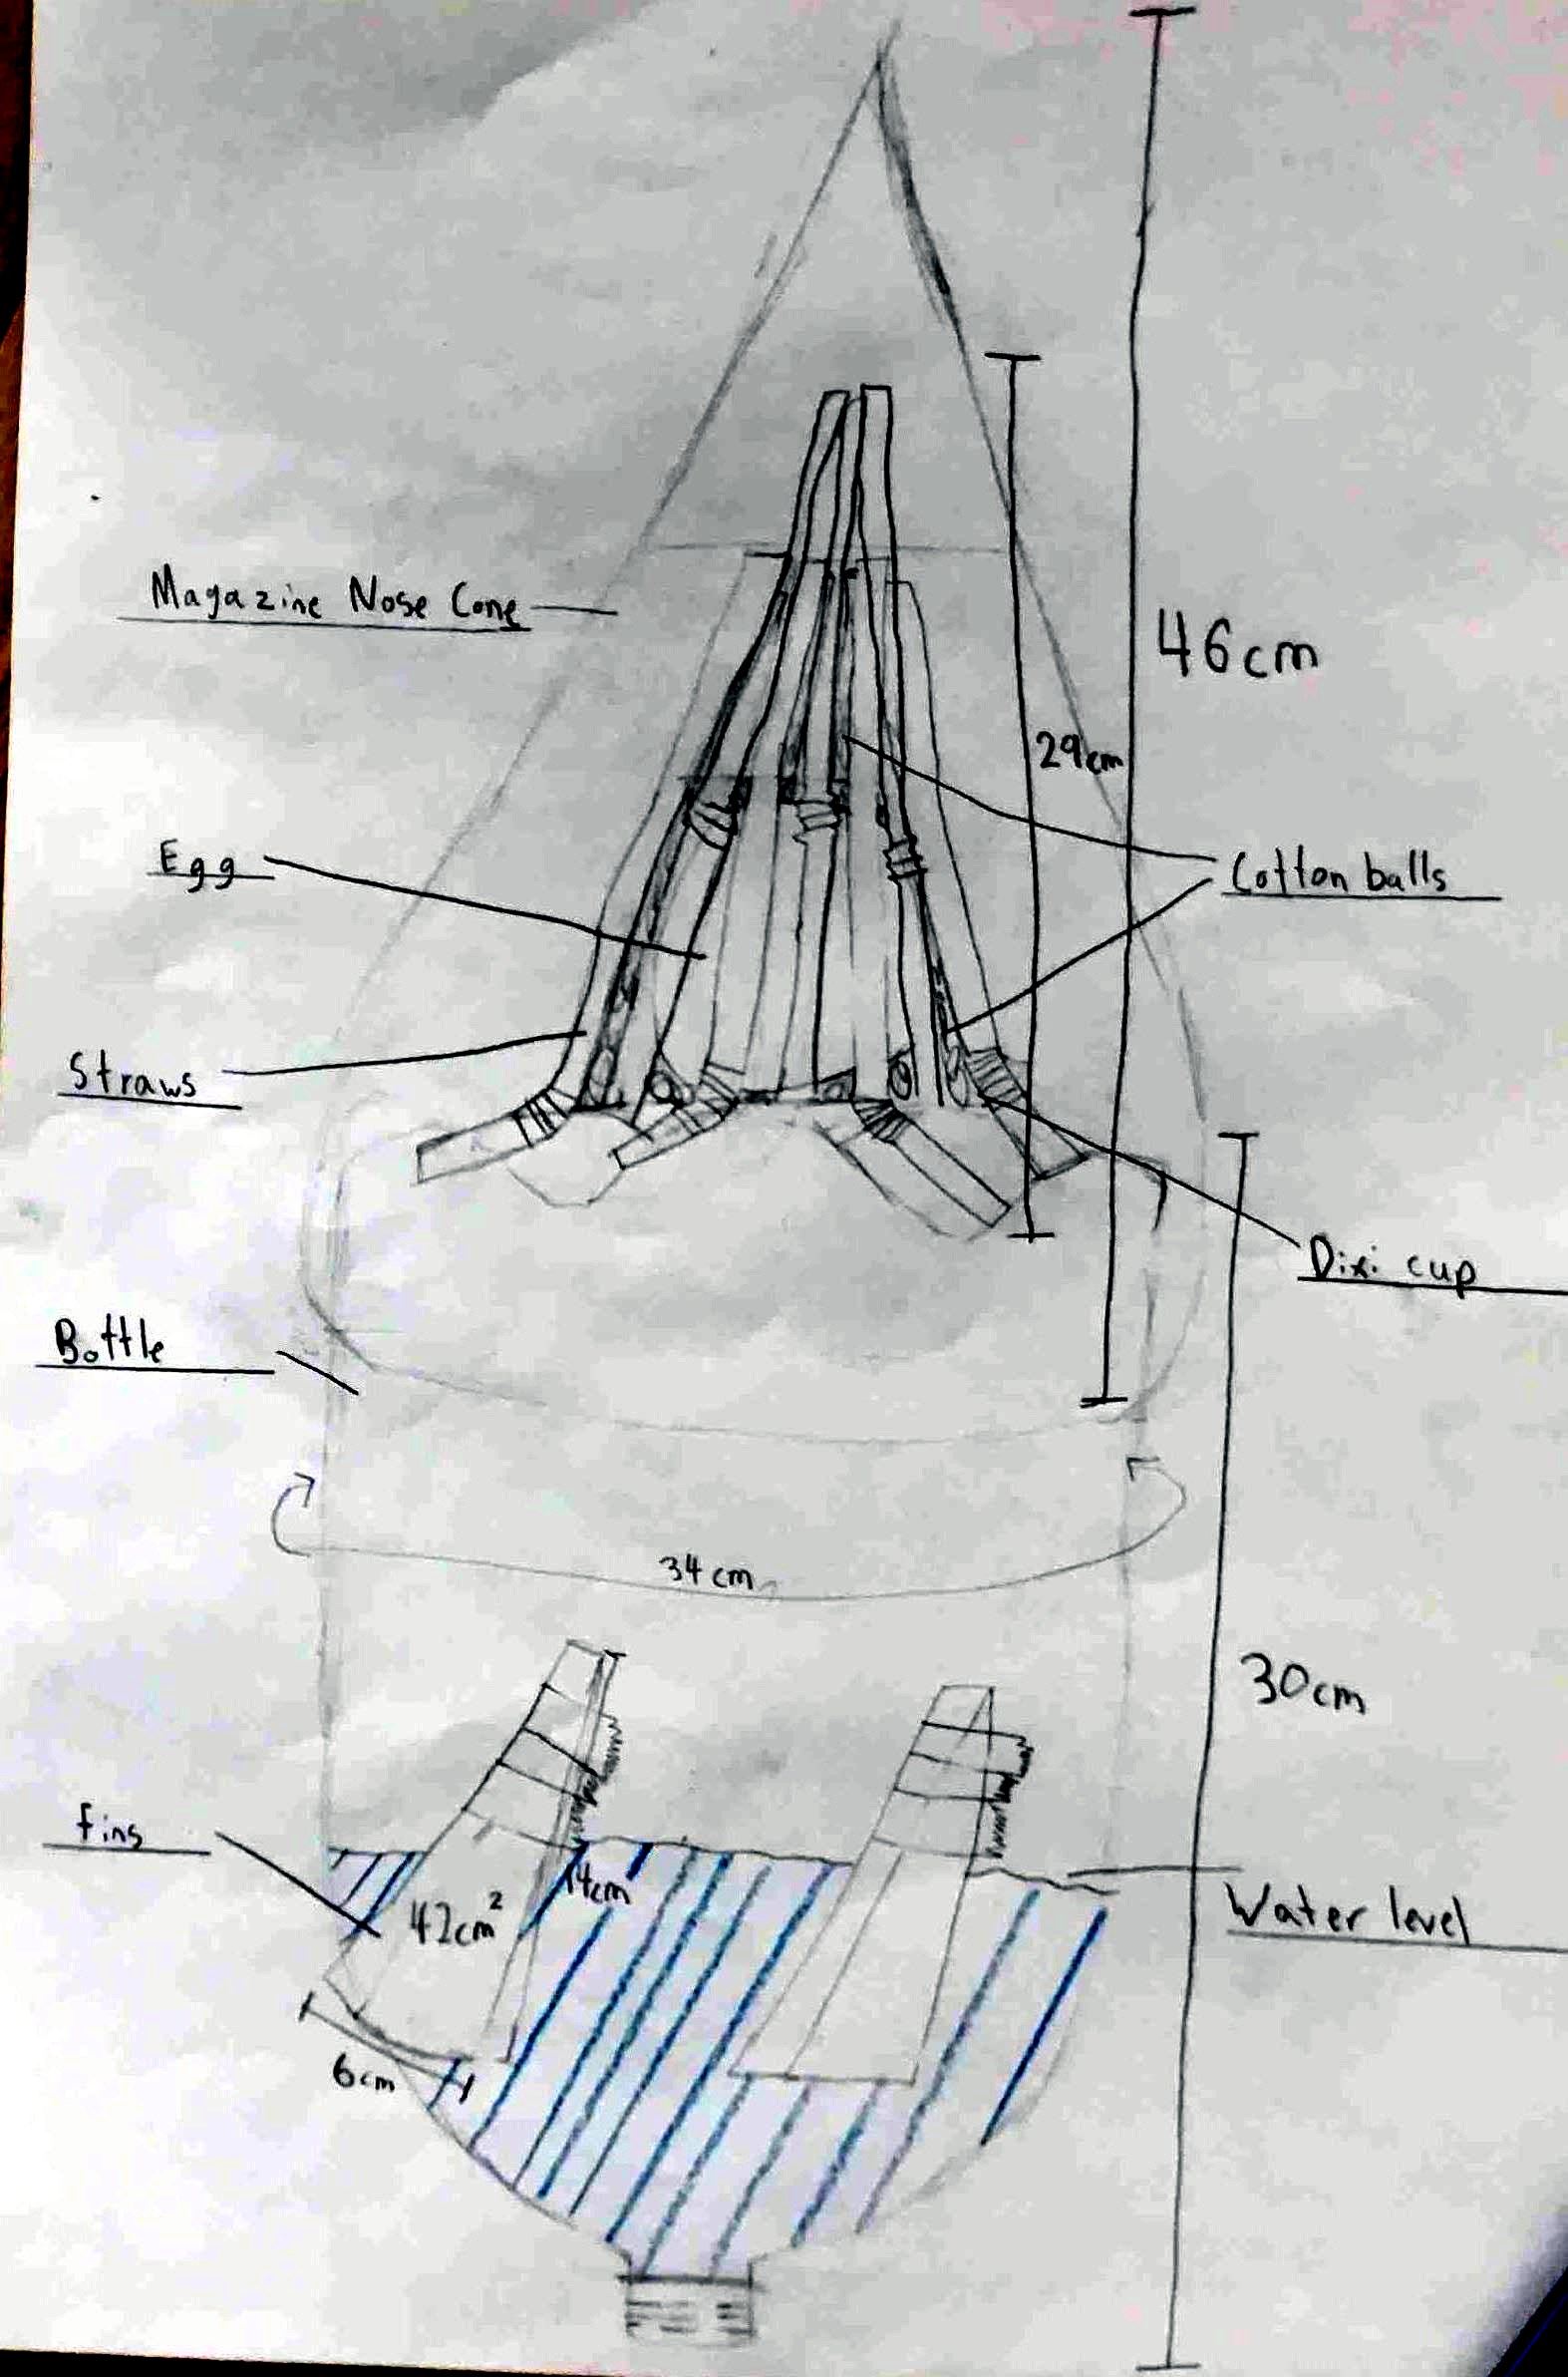 46cm
Magazine Nose Cone
29cm
Egg
Cotton balls
Straws
Dixi cup
Bottle
34 cm
30cm
fins
14cm
42cm²
Water level
6cm